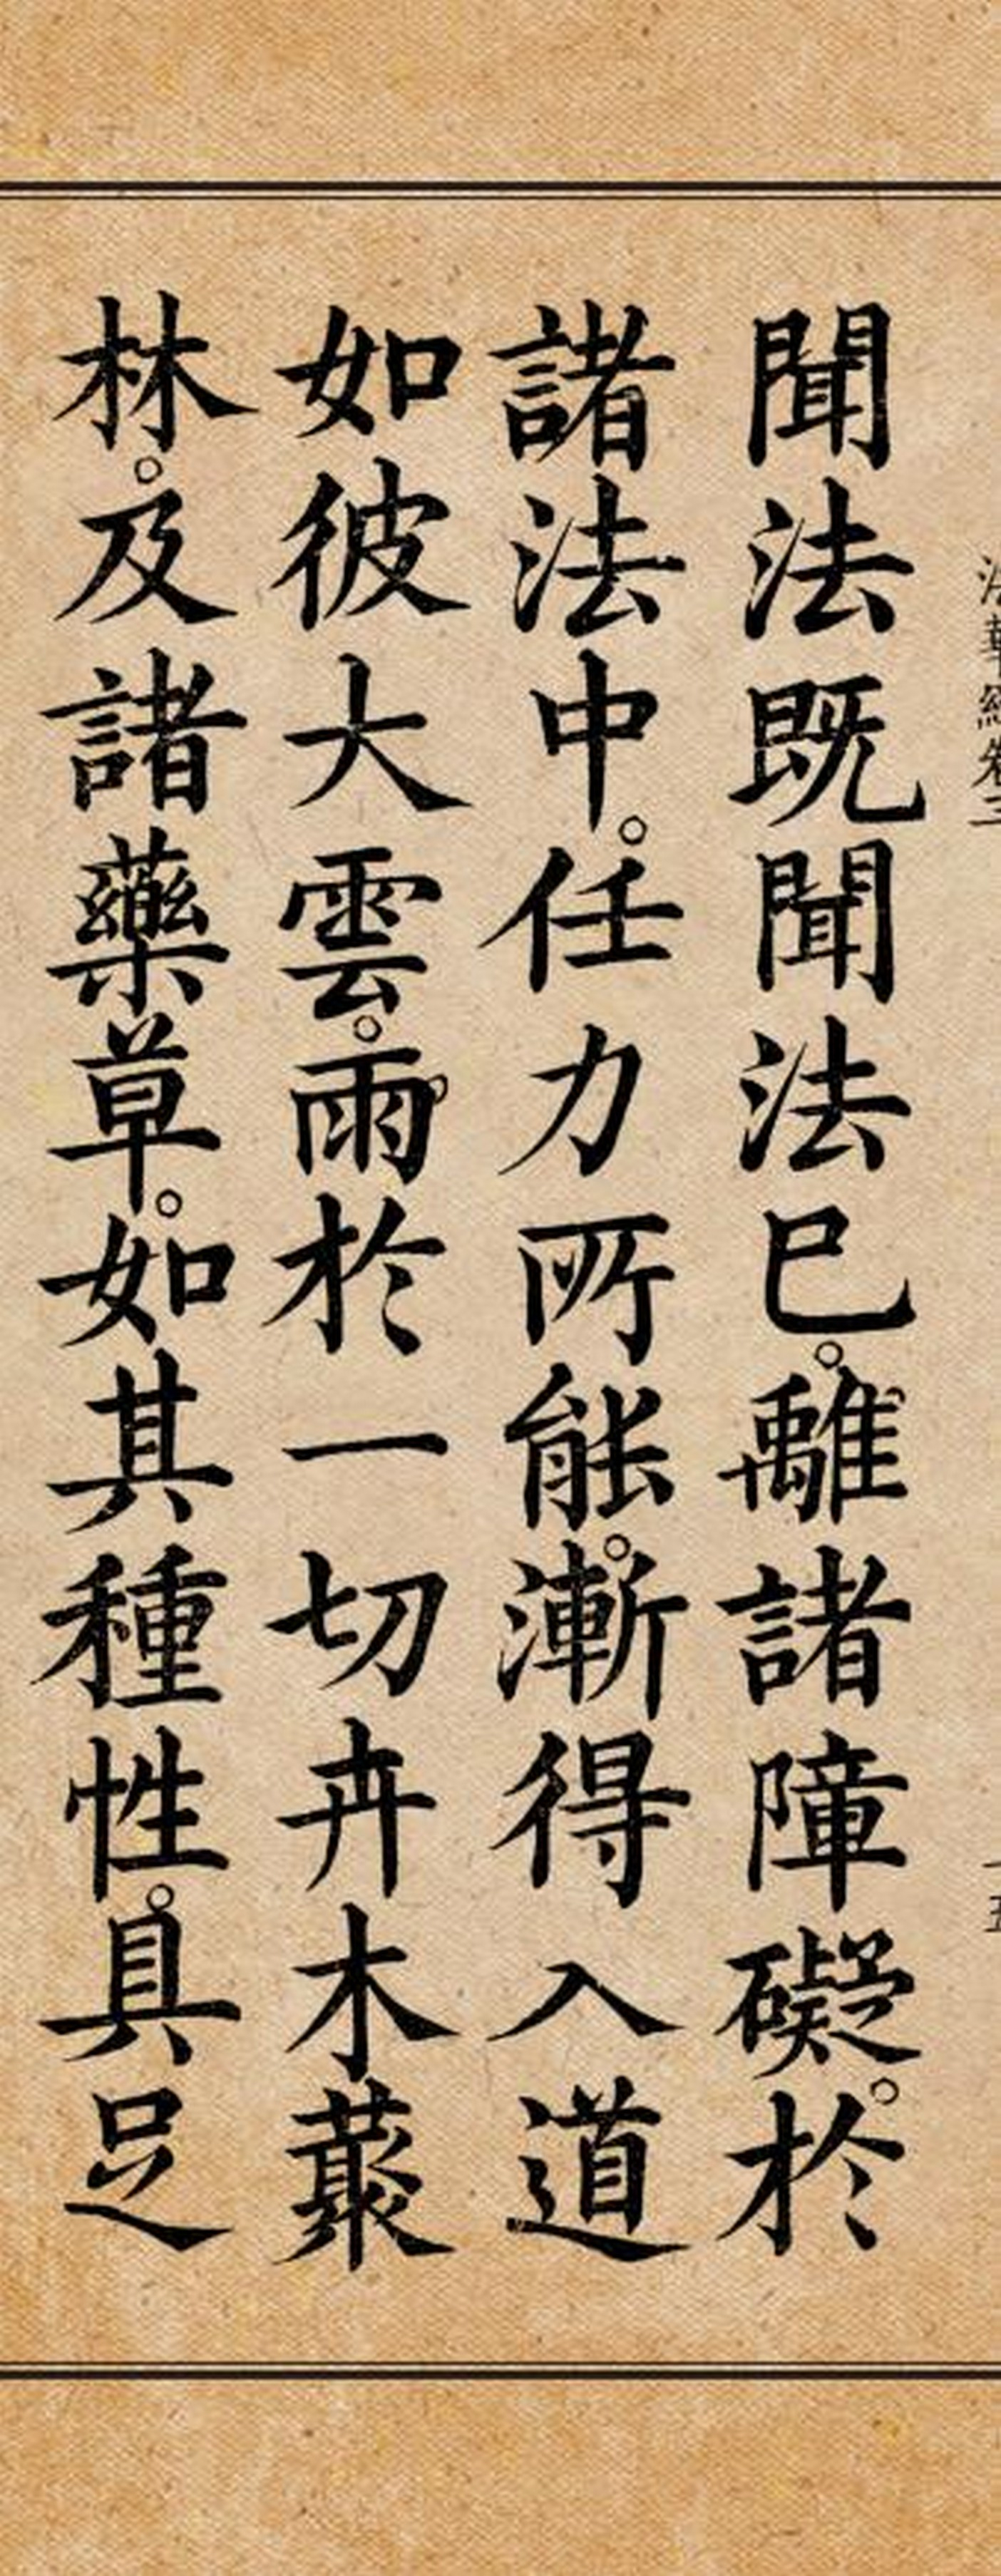 法華經卷三
聞法既聞法已。離諸障礙。於
諸法中。任力所能。漸得入道
如彼大雲。雨於一切卉木叢
林。及諸藥草。如其種性。具足